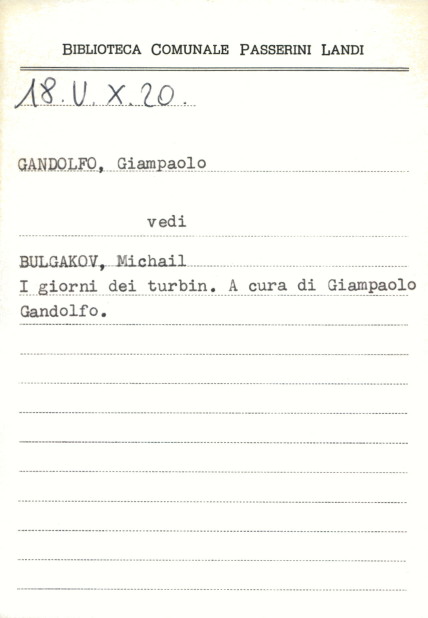 BIBLIOTECA COMUNALE PASSERINI LANDI
18.V.X.20.
GANDOLFO, Giampaolo
vedi
BULGAKOV, Michail
I giorni dei turbin. A cura di Giampaolo
Gandolfo.